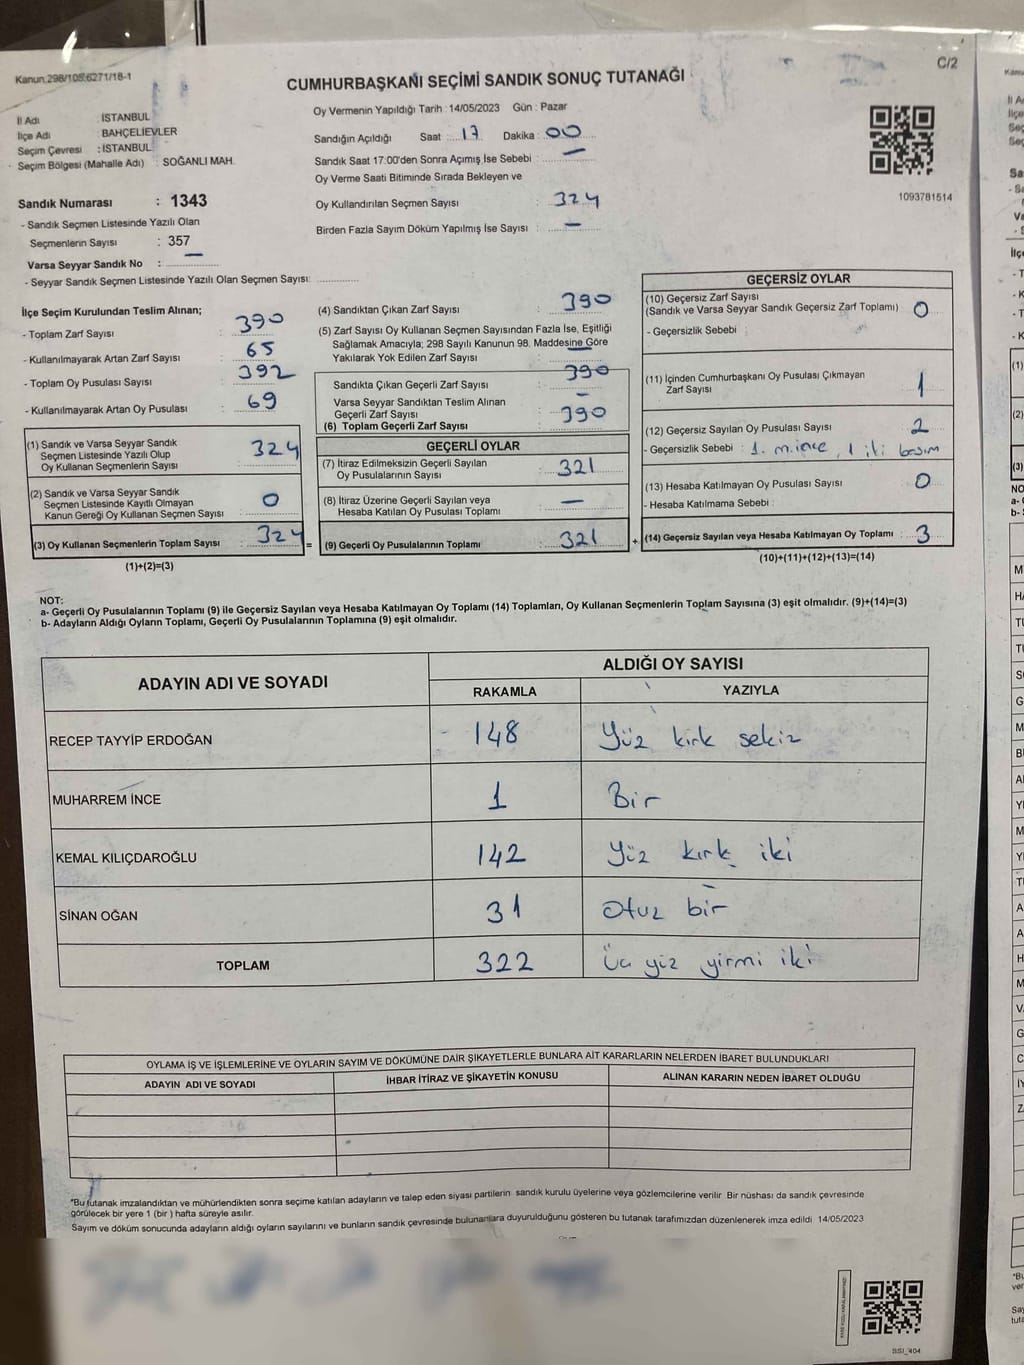 Kanun:298/105;6271/18-1
C/2
CUMHURBAŞKANI SEÇİMİ SANDIK SONUÇ TUTANAĞI
İl Adı : İSTANBUL
İlçe Adı : BAHÇELİEVLER
Seçim Çevresi : İSTANBUL
Seçim Bölgesi (Mahalle Adı) : SOĞANLI MAH.
Oy Vermenin Yapıldığı Tarih : 14/05/2023 Gün : Pazar
Sandığın Açıldığı Saat : 17 Dakika : 00
Sandık Saat 17:00'den Sonra Açımış İse Sebebi : —
Oy Verme Saati Bitiminde Sırada Bekleyen ve
Oy Kullandırılan Seçmen Sayısı : 324
Birden Fazla Sayım Döküm Yapılmış İse Sayısı : —
1093781514
Sandık Numarası : 1343
- Sandık Seçmen Listesinde Yazılı Olan
Seçmenlerin Sayısı : 357
Varsa Seyyar Sandık No : —
- Seyyar Sandık Seçmen Listesinde Yazılı Olan Seçmen Sayısı:
İlçe Seçim Kurulundan Teslim Alınan;
- Toplam Zarf Sayısı : 390
- Kullanılmayarak Artan Zarf Sayısı : 65
- Toplam Oy Pusulası Sayısı : 392
- Kullanılmayarak Artan Oy Pusulası : 69
(1) Sandık ve Varsa Seyyar Sandık
Seçmen Listesinde Yazılı Olup
Oy Kullanan Seçmenlerin Sayısı : 324
(2) Sandık ve Varsa Seyyar Sandık
Seçmen Listesinde Kayıtlı Olmayan
Kanun Gereği Oy Kullanan Seçmen Sayısı : 0
(3) Oy Kullanan Seçmenlerin Toplam Sayısı : 324
(1)+(2)=(3)
(4) Sandıktan Çıkan Zarf Sayısı : 390
(5) Zarf Sayısı Oy Kullanan Seçmen Sayısından Fazla İse, Eşitliği
Sağlamak Amacıyla; 298 Sayılı Kanunun 98. Maddesine Göre
Yakılarak Yok Edilen Zarf Sayısı : —
Sandıkta Çıkan Geçerli Zarf Sayısı : 390
Varsa Seyyar Sandıktan Teslim Alınan
Geçerli Zarf Sayısı : —
(6) Toplam Geçerli Zarf Sayısı : 390
GEÇERLİ OYLAR
(7) İtiraz Edilmeksizin Geçerli Sayılan
Oy Pusulasının Sayısı : 321
(8) İtiraz Üzerine Geçerli Sayılan veya
Hesaba Katılan Oy Pusulası Toplamı : —
= (9) Geçerli Oy Pusulalarının Toplamı : 321
GEÇERSİZ OYLAR
(10) Geçersiz Zarf Sayısı
(Sandık ve Varsa Seyyar Sandık Geçersiz Zarf Toplamı) : 0
- Geçersizlik Sebebi :
(11) İçinden Cumhurbaşkanı Oy Pusulası Çıkmayan
Zarf Sayısı : 1
(12) Geçersiz Sayılan Oy Pusulası Sayısı : 2
- Geçersizlik Sebebi : 1. m.ince, 1 iki basım
(13) Hesaba Katılmayan Oy Pusulası Sayısı : 0
- Hesaba Katılmama Sebebi :
+ (14) Geçersiz Sayılan veya Hesaba Katılmayan Oy Toplamı : 3
(10)+(11)+(12)+(13)=(14)
NOT:
a- Geçerli Oy Pusulalarının Toplamı (9) ile Geçersiz Sayılan veya Hesaba Katılmayan Oy Toplamı (14) Toplamları, Oy Kullanan Seçmenlerin Toplam Sayısına (3) eşit olmalıdır. (9)+(14)=(3)
b- Adayların Aldığı Oyların Toplamı, Geçerli Oy Pusulalarının Toplamına (9) eşit olmalıdır.
ADAYIN ADI VE SOYADI ALDIĞI OY SAYISI
RAKAMLA YAZIYLA
RECEP TAYYİP ERDOĞAN 148 Yüz kırk sekiz
MUHARREM İNCE 1 Bir
KEMAL KILIÇDAROĞLU 142 Yüz kırk iki
SİNAN OĞAN 31 Otuz bir
TOPLAM 322 Üç yüz yirmi iki
OYLAMA İŞ VE İŞLEMLERİNE VE OYLARIN SAYIM VE DÖKÜMÜNE DAİR ŞİKAYETLERLE BUNLARA AİT KARARLARIN NELERDEN İBARET BULUNDUKLARI
ADAYIN ADI VE SOYADI İHBAR İTİRAZ VE ŞİKAYETİN KONUSU ALINAN KARARIN NEDEN İBARET OLDUĞU
*Bu tutanak imzalandıktan ve mühürlendikten sonra seçime katılan adayların ve talep eden siyasi partilerin sandık kurulu üyelerine veya gözlemcilerine verilir. Bir nüshası da sandık çevresinde
görülecek bir yere 1 (bir) hafta süreyle asılır.
Sayım ve döküm sonucunda adayların aldığı oyların sayılarını ve bunların sandık çevresinde bulunanlara duyurulduğunu gösteren bu tutanak tarafımızdan düzenlenerek imza edildi 14/05/2023
SSI_404